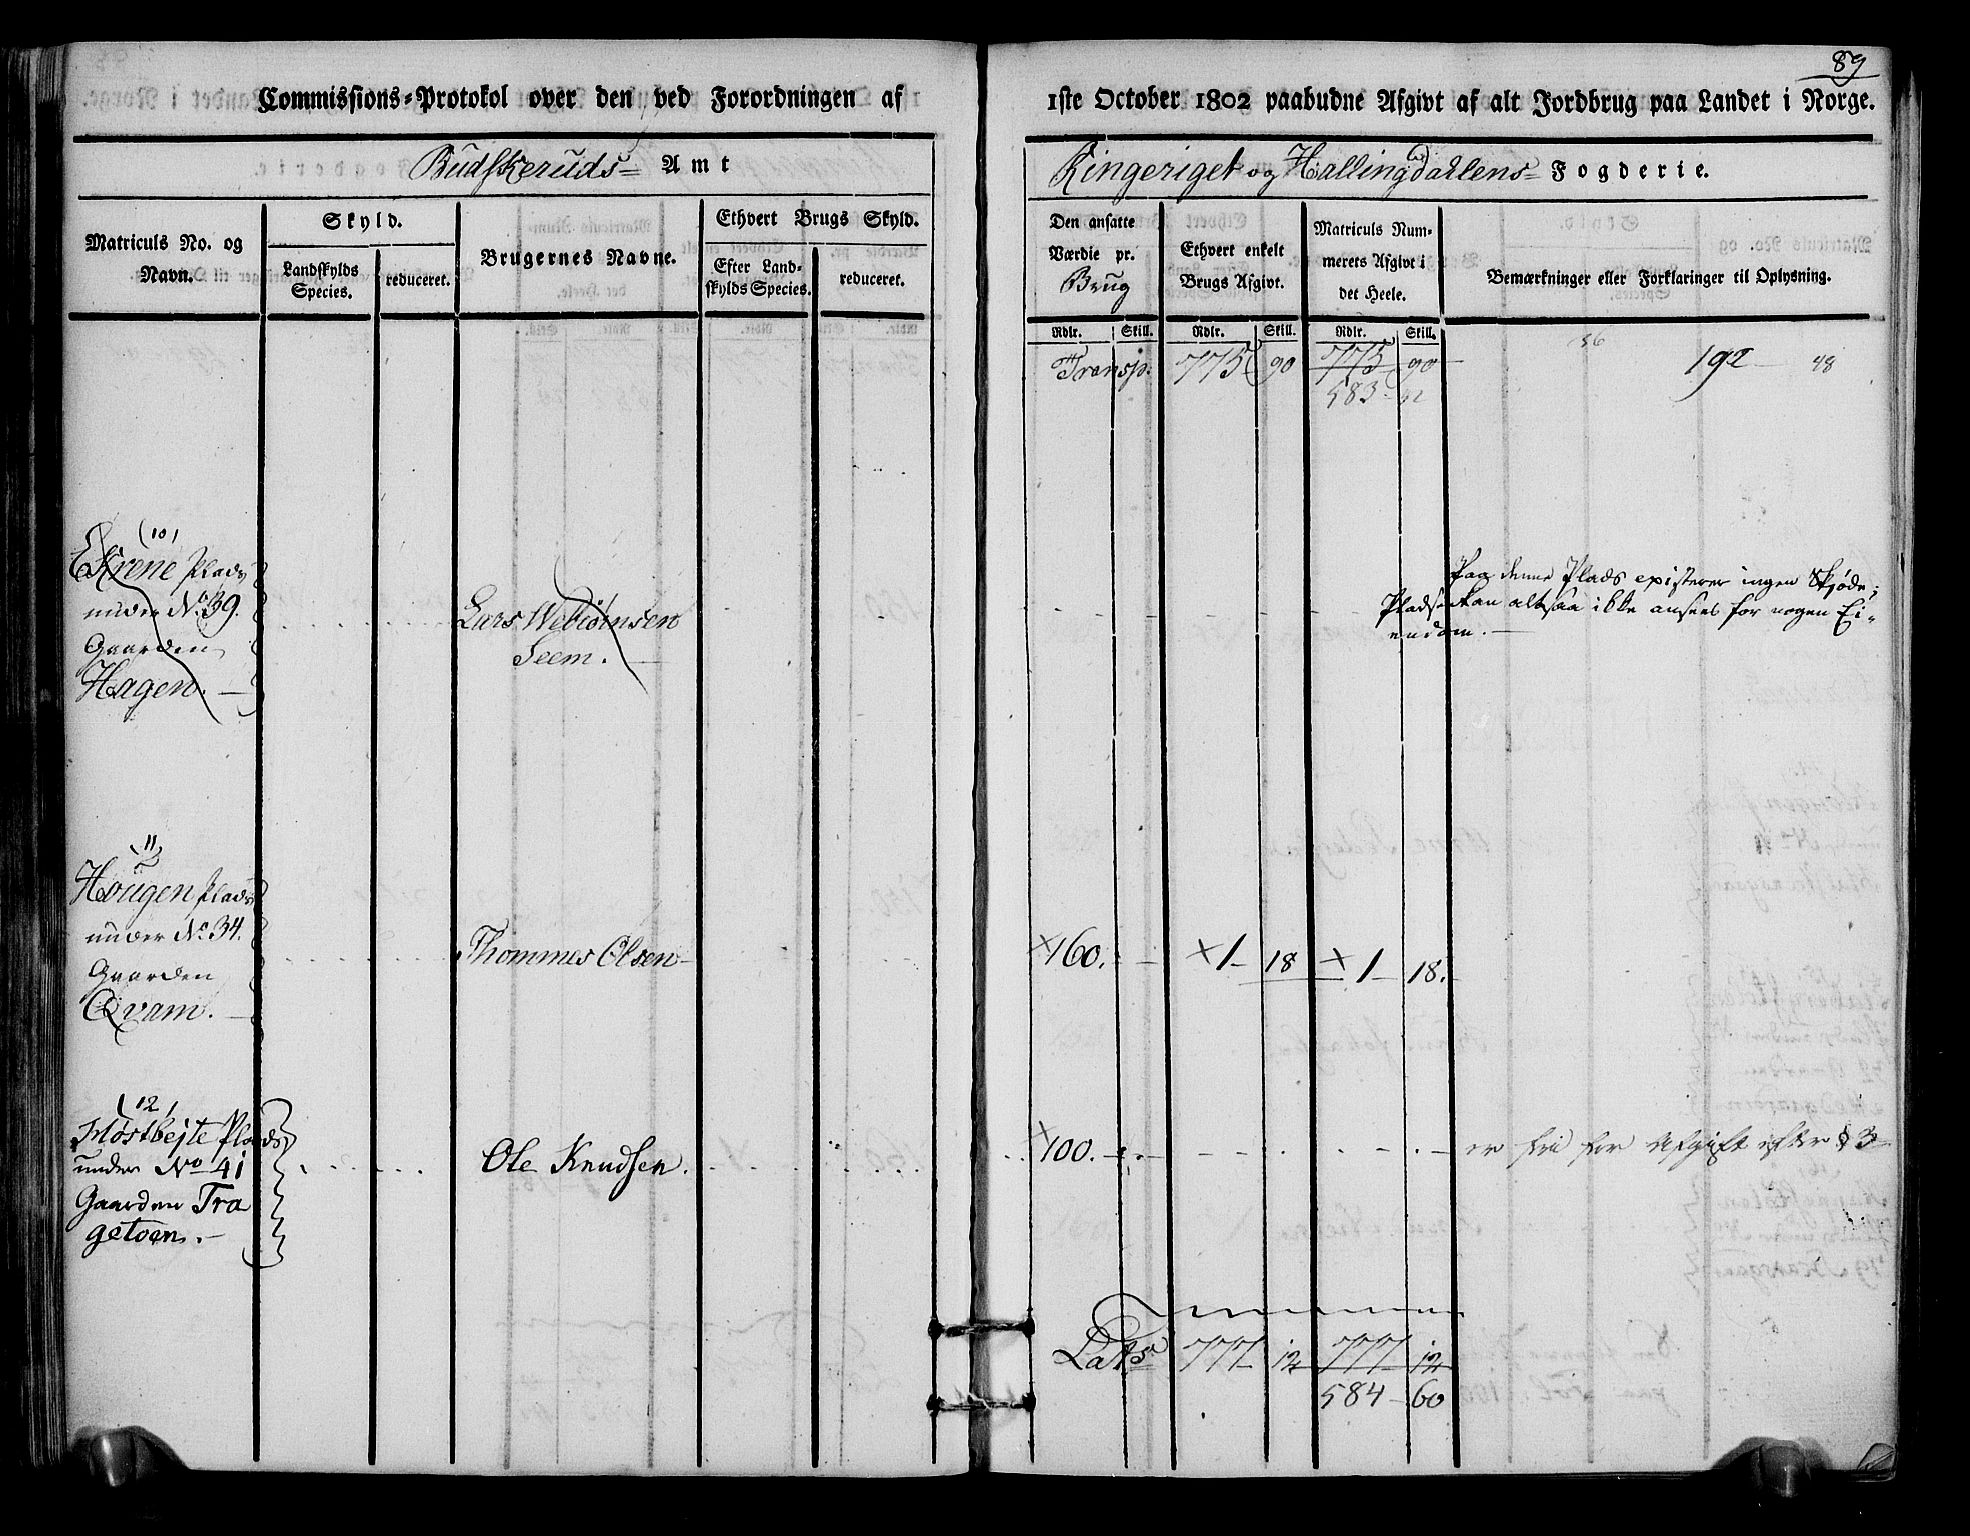 89
Commissions-Protokol over den ved Forordningen af 1ste October 1802 paabudne Afgivt af alt Jordbrug paa Landet i Norge.
Budskeruds Amt
Ringeriget og Hallingdahlens Fogderie.
Matriculs No. og Navn.
Skyld.
Landskylds Species.
reduceret.
Brugernes Navne.
Ethvert Brugs Skyld.
Efter Landskylds Species.
reduceret.
Den ansatte Værdie pr. Brug
Ethvert enkelt Brugs Afgivt.
Matriculs Nummerets Afgivt i det Heele.
Bemærkninger eller Forklaringer til Oplysning.
Rdlr. Skill. Rdlr. Skill. Rdlr. Skill.
Transp. 775 90 775 90 192 48
583
(10)
Ekrene Plads
under No. 39.
Gaarden
Hagen.
Lars Webiørnsen
Seem.
Paa denne Plads existerer ingen Skjøde;
Pladsen kan altsaa ikke ansees for nogen Ei-
endom.
11
Hougen Plads
under No. 34.
Gaarden
Qvam.
Thommes Olsen
×160. ×1 18 ×1 18.
(12)
Møstbejte Plads
under No 41
Gaarden Tra
getoen.
Ole Knudsen.
×100.
er fri for Afgift efter § 3
Lats 777 12 777 12
584 60